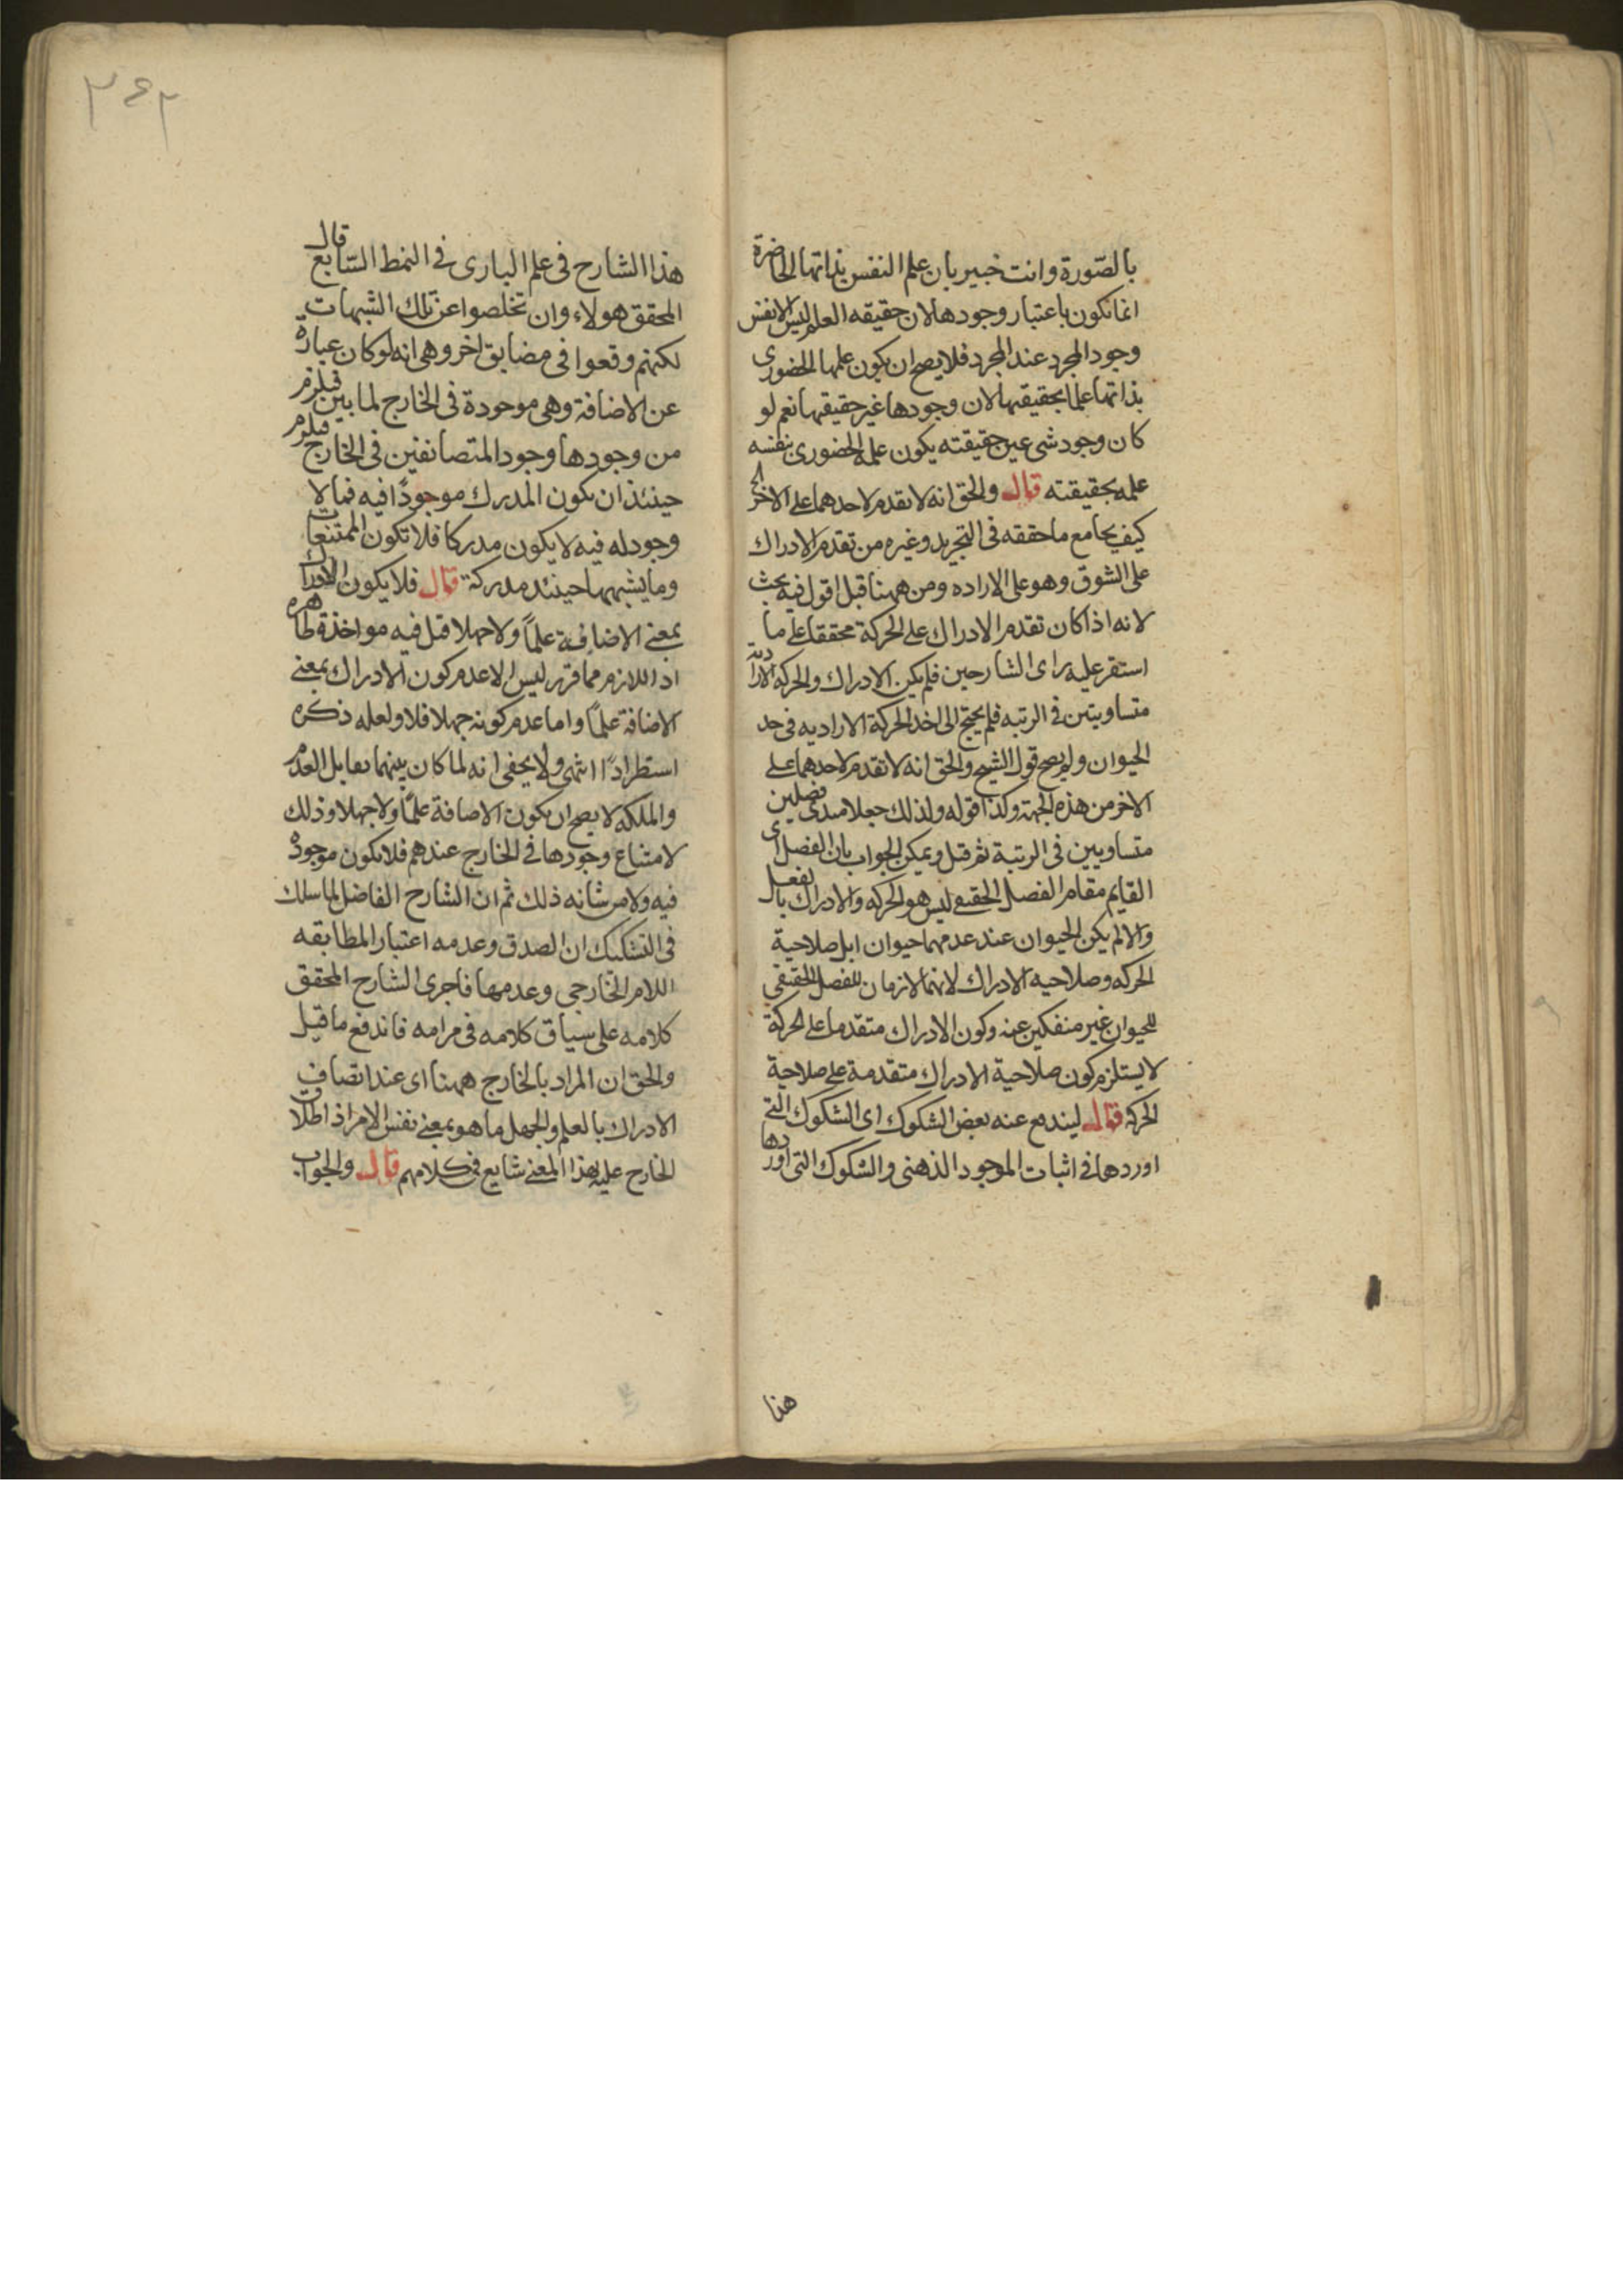 بالصّورة وانت خبير بان علم النفس بذاتها الحاضرة
انما تكون باعتبار وجودها لان حقيقه العلم ليس الا نفس
وجود المجرد عند المجرد فلا يصح ان يكون علمها الحضورى
بذاتها علما بحقيقتها لان وجودها غير حقيقتها نعم لو
كان وجود شى عين حقيقته يكون علمه الحضورى بنفسه
علمه بحقيقته قال والحق انه لا تقدم لاحدهما على الاخر
كيف يجامع ما حققه فى التجريد وغيره من تقدم الادراك
على الشوق وهو على الاراده ومن ههنا قيل اقول فيه بحث
لانه اذا كان تقدم الادراك على الحركة محققا على ما
استقر عليه راى الشارحين فلم يكن الادراك والحركه الارادية
متساويتين فى الرتبه فلم يحتج الى اخذ الحركة الاراديه فى حد
الحيوان ولم يصح قول الشيخ والحق انه لا تقدم لاحدهما على
الاخر من هذه الجهة وكذا قوله ولذلك جعلا مبدئ فصلين
متساويين فى الرتبة ثم قيل ويمكن الجواب بان الفصل اى
القايم مقام الفصل الحقيقى ليس هو الحركه والادراك بالفعل
والا لم يكن الحيوان عند عدمهما حيوانا بل صلاحية
الحركه وصلاحيه الادراك لانهما لازمان للفصل الحقيقى
للحيوان غير منفكين عنه وكون الادراك متقدما على الحركة
لا يستلزم كون صلاحية الادراك متقدمة على صلاحية
الحركة قال ليندفع عنه بعض الشكوك اى الشكوك التى
اوردها فى اثبات الموجود الذهنى والشكوك التى اوردها
هذا
٣٤٢
هذا الشارح فى علم البارى فى النمط السّابع قال
المحقق هولاء وان تخلصوا عن تلك الشبهات
لكنهم وقعوا فى مضايق اخر وهى انه لو كان عبارة
عن الاضافة وهى موجودة فى الخارج لما بين فيلزم
من وجودها وجود المتضائفين فى الخارج فيلزم
حينئذ ان يكون المدرك موجودًا فيه فما لا
وجود له فيه لا يكون مدركا فلا تكون الممتنعات
وما يشبهها حينئذ مدركة قال فلا يكون الادراك
بمعنى الاضافة علمًا ولا جهلا قيل فيه مواخذة ظاهره
اذ اللازم مما قرر ليس الا عدم كون الادراك بمعنى
الاضافة علمًا واما عدم كونه جهلا فلا ولعله ذكره
استطرادًا انتهى ولا يخفى انه لما كان بينهما تقابل العدم
والملكه لا يصح ان يكون الاضافة علمًا ولا جهلا وذلك
لامتناع وجودها فى الخارج عندهم فلا تكون موجودة
فيه ولا من شانه ذلك ثم ان الشارح الفاضل لما سلك
فى التشكيك ان الصدق وعدمه اعتبار المطابقه
اللامر الخارجى وعدمها فاجرى الشارح المحقق
كلامه على سياق كلامه فى مرامه فاندفع ما قيل
والحق ان المراد بالخارج ههنا اى عند اتصاف
الادراك بالعلم والجهل ما هو بمعنى نفس الامر اذ اطلاق
الخارج عليه بهذا المعنى شايع فى كلامهم قال والجواب